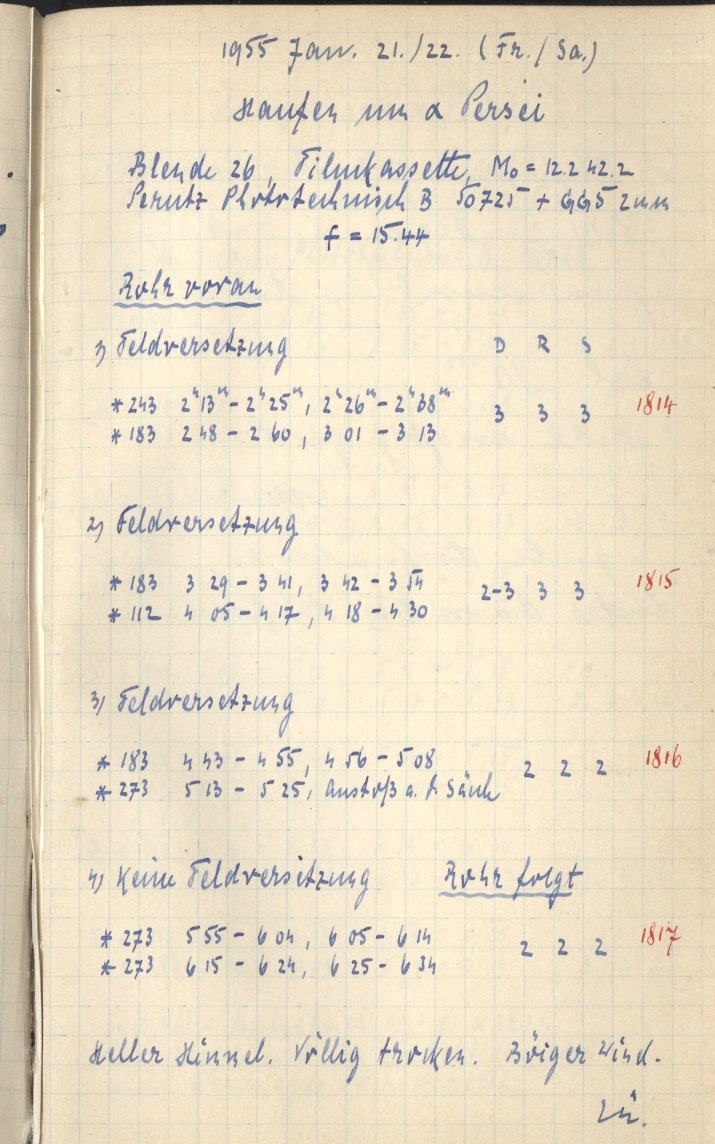 1955 Jan. 21./22. (Fr./Sa.)
Haufen um α Persei
Blende 26, Filmkassette, M₀ = 12.2 42.2
Perutz Phototechnisch B 50725 + GG5 2mm
f = 15.44
Rohr voran
1) Feldversetzung D R S
* 243 2ʰ13ᵐ - 2ʰ25ᵐ, 2ʰ26ᵐ - 2ʰ38ᵐ 3 3 3 1814
* 183 2 48 - 2 60, 3 01 - 3 13
2) Feldversetzung
* 183 3 29 - 3 41, 3 42 - 3 54 2-3 3 3 1815
* 112 4 05 - 4 17, 4 18 - 4 30
3) Feldversetzung
* 183 4 43 - 4 55, 4 56 - 5 08 2 2 2 1816
* 273 5 13 - 5 25, Anstoß a. d. Säule
4) Keine Feldversetzung Rohr folgt
* 273 5 55 - 6 04, 6 05 - 6 14 2 2 2 1817
* 273 6 15 - 6 24, 6 25 - 6 34
Heller Himmel. Völlig trocken. Böiger Wind.